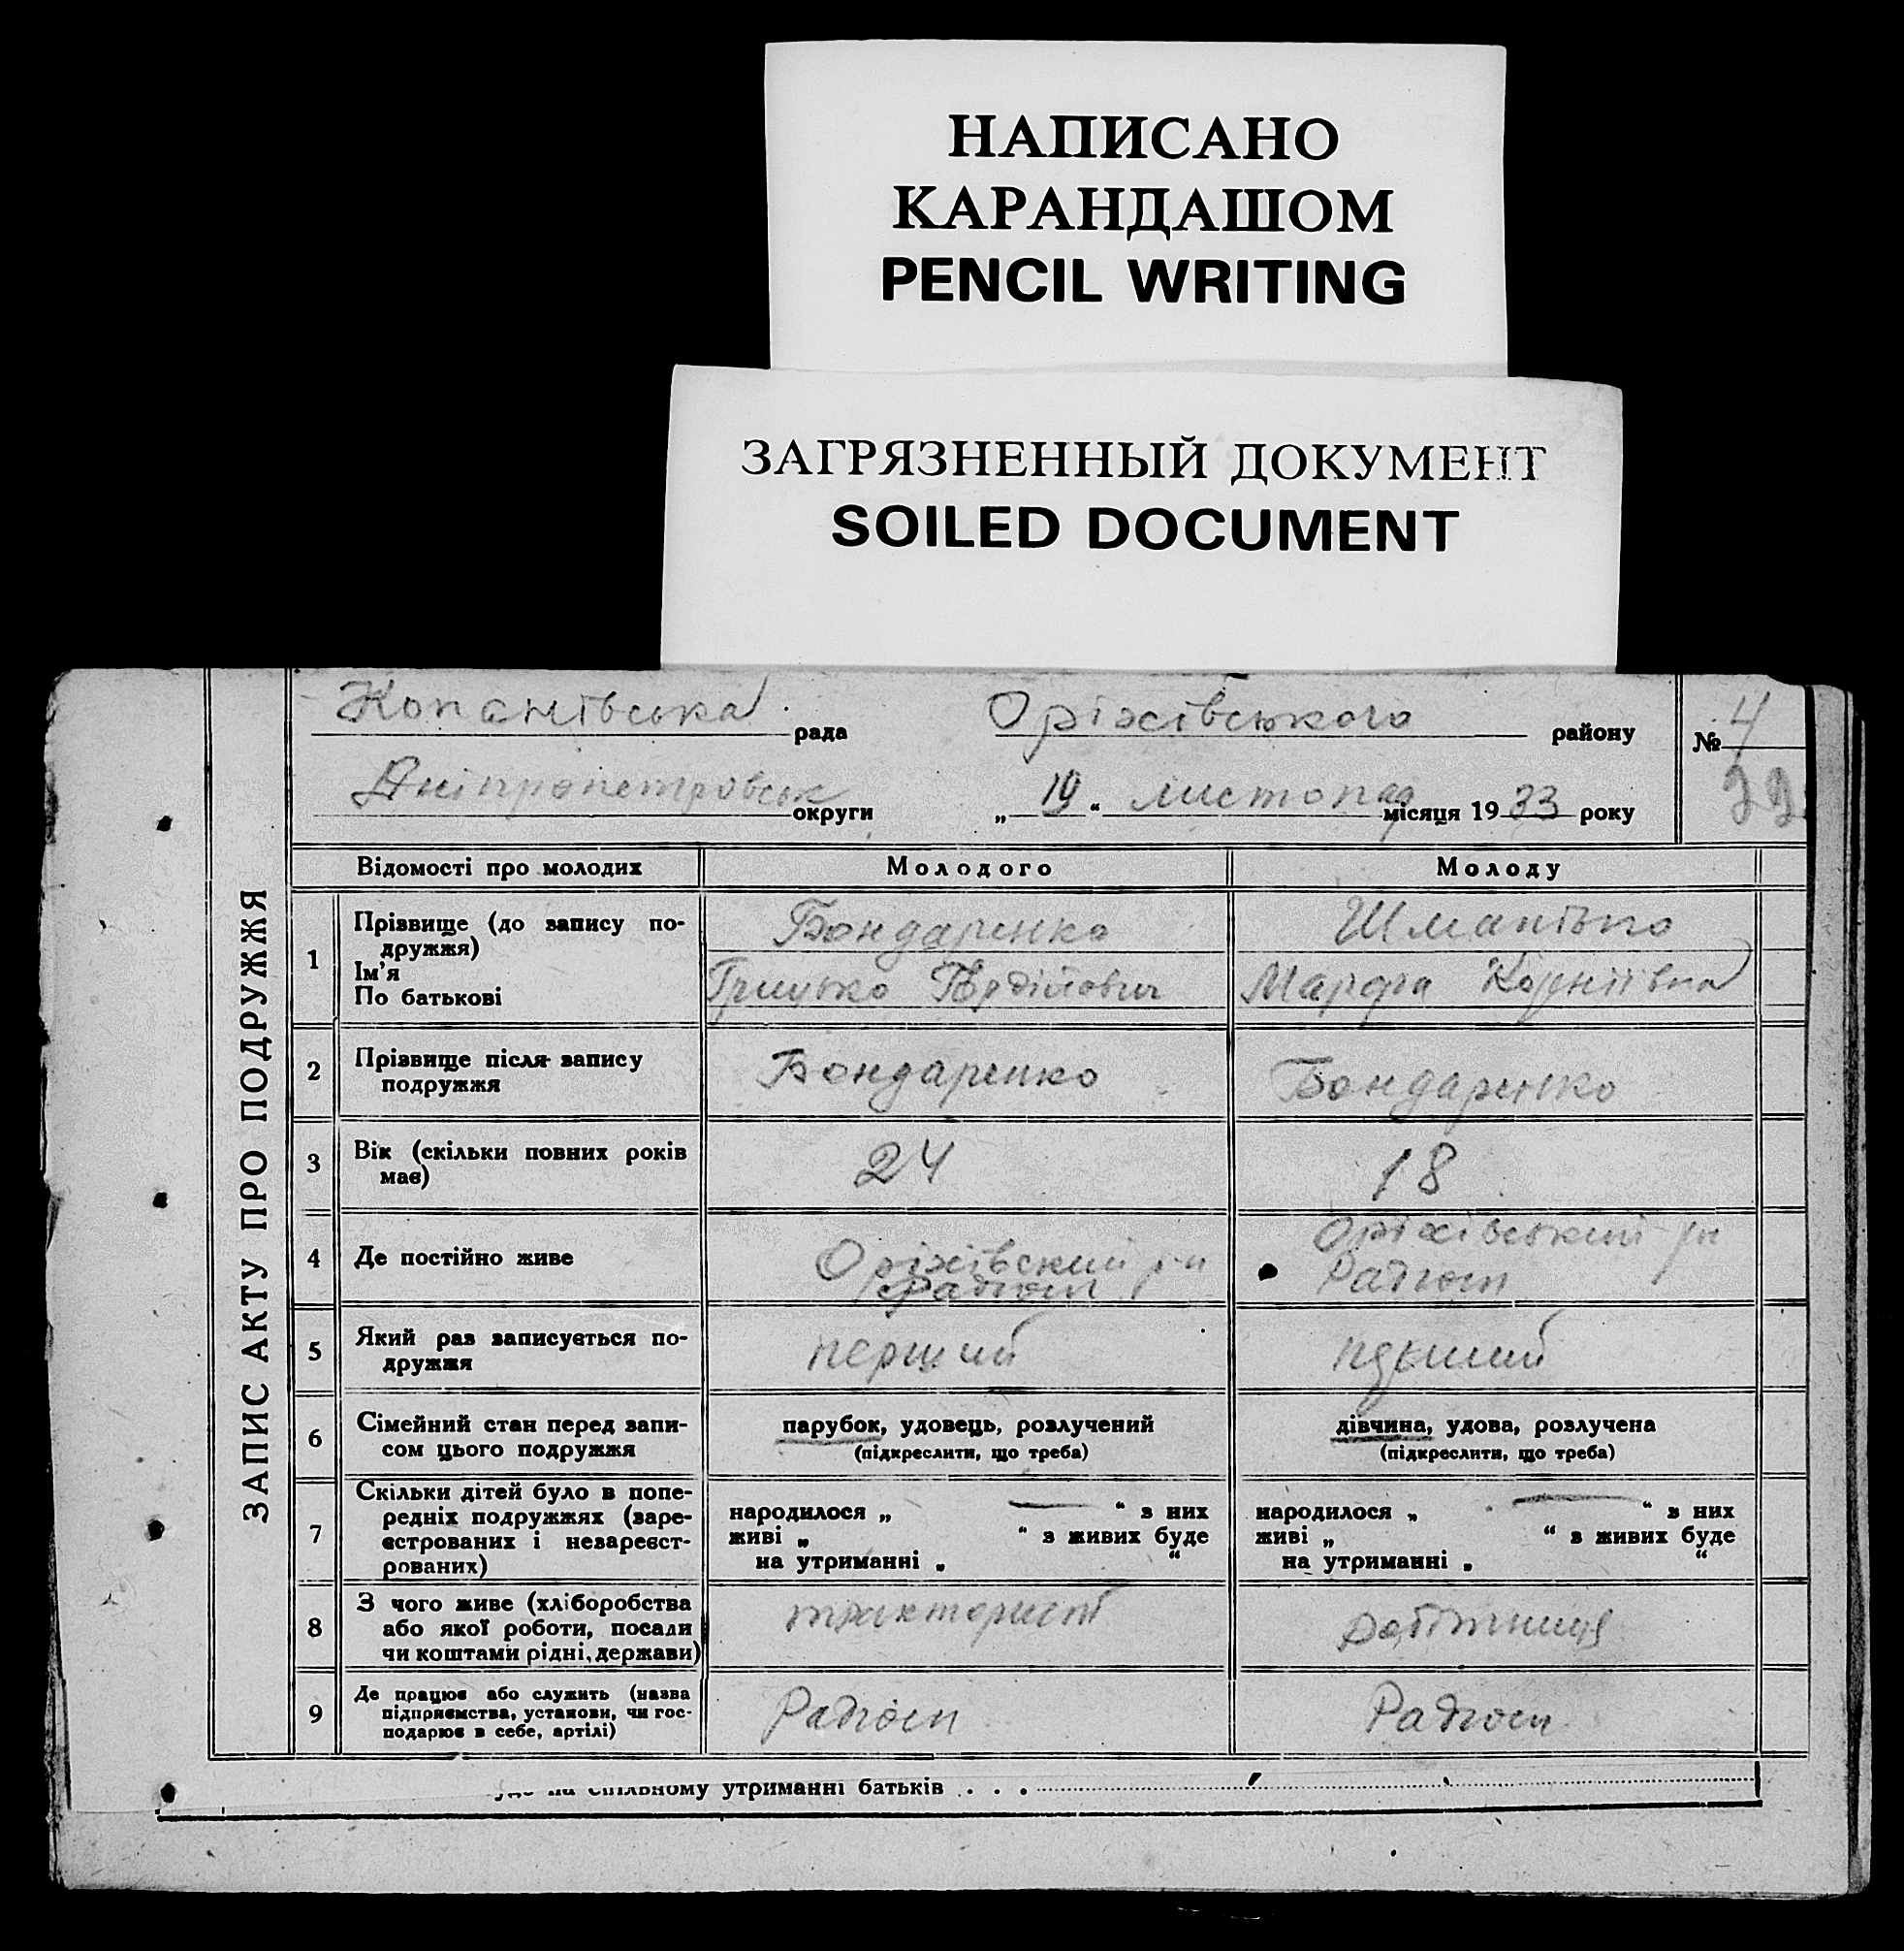 НАПИСАНО
КАРАНДАШОМ
PENCIL WRITING
ЗАГРЯЗНЕННЫЙ ДОКУМЕНТ
SOILED DOCUMENT
Копанівська рада Оріхівського району № 4
Дніпропетровськ округи „ 19 “ листопад місяця 19 33 року
ЗАПИС АКТУ ПРО ПОДРУЖЖЯ
Відомості про молодих Молодого Молоду
1 Прізвище (до запису по-
дружжя)
Ім'я
По батькові
Бондаренко
Грицько
Марфа Корніївна
2 Прізвище після запису
подружжя
Бондаренко Бондаренко
3 Вік (скільки повних років
має)
24 18
4 Де постійно живе
Оріхівский р-н
Радгосп
Оріхівський р-н
Радгосп
5 Який раз записується по-
дружжя
перший перший
6 Сімейний стан перед запи-
сом цього подружжя
парубок, удовець, розлучений
(підкреслити, що треба)
дівчина, удова, розлучена
(підкреслити, що треба)
7 Скільки дітей було в попе-
редніх подружжях (заре-
єстрованих і незареєст-
рованих)
народилося „ — “ з них
живі „ “ з живих буде
на утриманні „ “
народилося „ — “ з них
живі „ “ з живих буде
на утриманні „ “
8 З чого живе (хліборобства
або якої роботи, посади
чи коштами рідні, держави)
тракторист робітниця
9 Де працює або служить (назва
підприємства, установи, чи гос-
подарює в себе, артілі)
Радгосп Радгосп
спільному утриманні батьків . . .